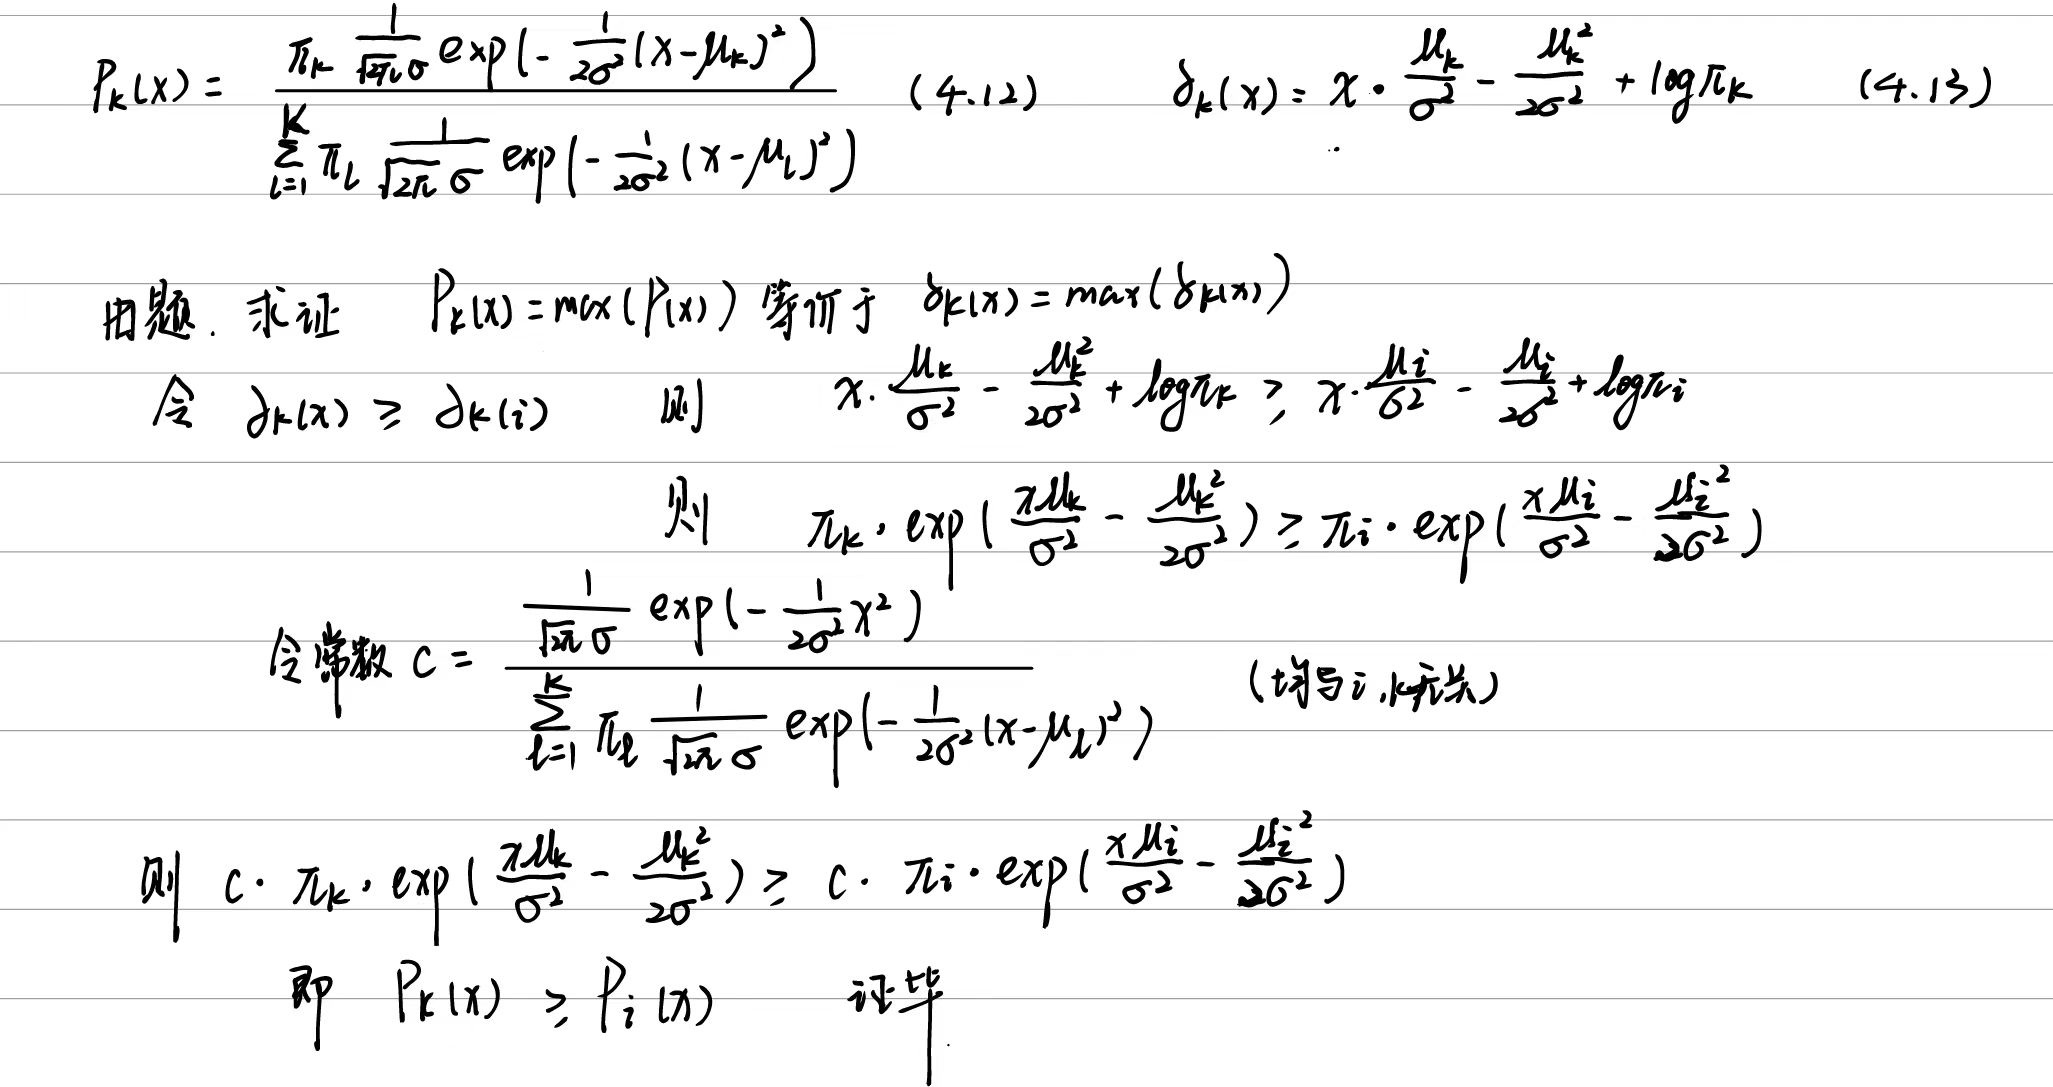 P_k(x) = \frac{π_k \frac{1}{\sqrt{2π}σ} exp(-\frac{1}{2σ^2}(x-μ_k)^2)}{\sum_{l=1}^{K} π_l \frac{1}{\sqrt{2π}σ} exp(-\frac{1}{2σ^2}(x-μ_l)^2)} (4.12) δ_k(x) = x·\frac{μ_k}{σ^2} - \frac{μ_k^2}{2σ^2} + logπ_k (4.13)
由题. 求证 P_k(x) = max(P(x)) 等价于 δ_k(x) = max(δ_k(x))
令 δ_k(x) ≥ δ_k(i) 则 x·\frac{μ_k}{σ^2} - \frac{μ_k^2}{2σ^2} + logπ_k ≥ x·\frac{μ_i}{σ^2} - \frac{μ_i^2}{2σ^2} + logπ_i
则 π_k · exp(\frac{xμ_k}{σ^2} - \frac{μ_k^2}{2σ^2}) ≥ π_i · exp(\frac{xμ_i}{σ^2} - \frac{μ_i^2}{2σ^2})
令常数 c = \frac{\frac{1}{\sqrt{2π}σ} exp(-\frac{1}{2σ^2}x^2)}{\sum_{l=1}^{K} π_l \frac{1}{\sqrt{2π}σ} exp(-\frac{1}{2σ^2}(x-μ_l)^2)} (均与i,k无关)
则 c · π_k · exp(\frac{xμ_k}{σ^2} - \frac{μ_k^2}{2σ^2}) ≥ c · π_i · exp(\frac{xμ_i}{σ^2} - \frac{μ_i^2}{2σ^2})
即 P_k(x) ≥ P_i(x) 证毕